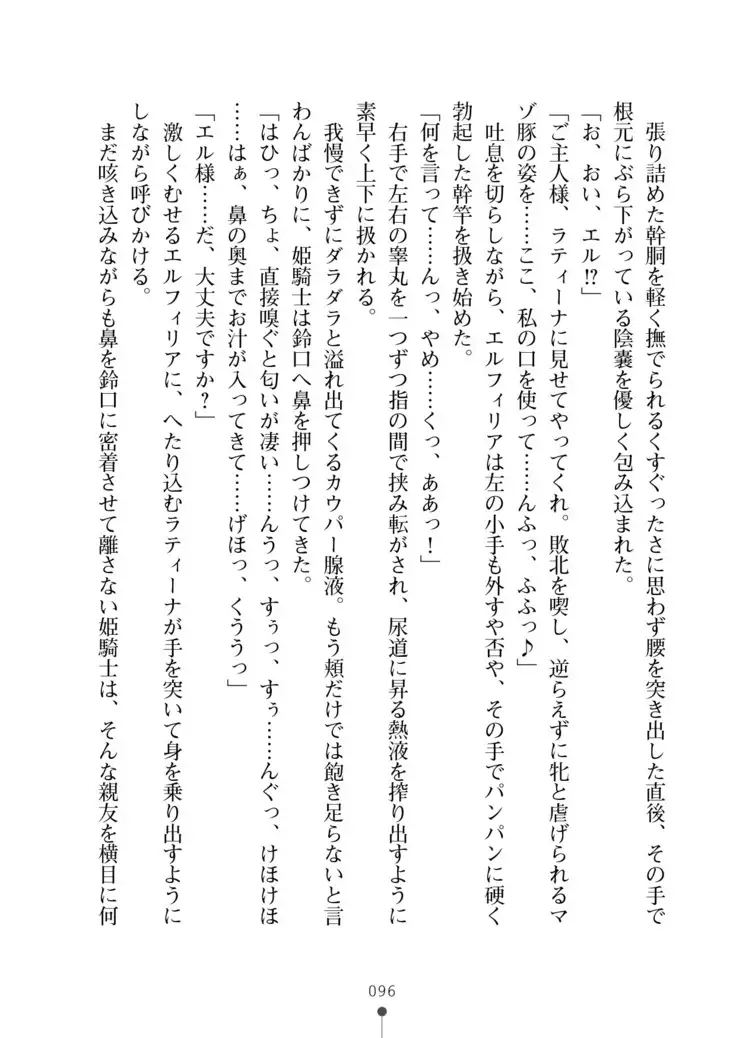 張り詰めた幹胴を軽く撫でられるくすぐったさに思わず腰を突き出した直後、その手で
根元にぶら下がっている陰嚢を優しく包み込まれた。
「お、おい、エル!?」
「ご主人様、ラティーナに見せてやってくれ。敗北を喫し、逆らえずに牝と虐げられるマ
ゾ豚の姿を……ここ、私の口を使って……んふっ、ふふっ♪」
吐息を切らしながら、エルフィリアは左の小手も外すや否や、その手でパンパンに硬く
勃起した幹竿を扱き始めた。
「何を言って……んっ、やめ……くっ、ああっ！」
右手で左右の睾丸を一つずつ指の間で挟み転がされ、尿道に昇る熱液を搾り出すように
素早く上下に扱かれる。
我慢できずにダラダラと溢れ出てくるカウパー腺液。もう頬だけでは飽き足らないと言
わんばかりに、姫騎士は鈴口へ鼻を押しつけてきた。
「はひっ、ちょ、直接嗅ぐと匂いが凄い……んうっ、すぅっ、すぅ……んぐっ、けほけほ
……はぁ、鼻の奥までお汁が入ってきて……げほっ、くううっ」
「エル様……だ、大丈夫ですか？」
激しくむせるエルフィリアに、へたり込むラティーナが手を突いて身を乗り出すように
しながら呼びかける。
まだ咳き込みながらも鼻を鈴口に密着させて離さない姫騎士は、そんな親友を横目に何
096